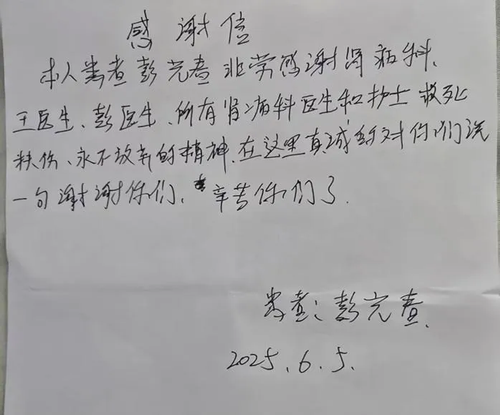 感谢信
本人患者彭完春非常感谢肾病科,
王医生、彭医生、所有肾病科医生和护士救死
扶伤、永不放弃的精神.在这里真诚的对你们说
一句谢谢你们, 辛苦你们了.
患者:彭完春.
2025.6.5.